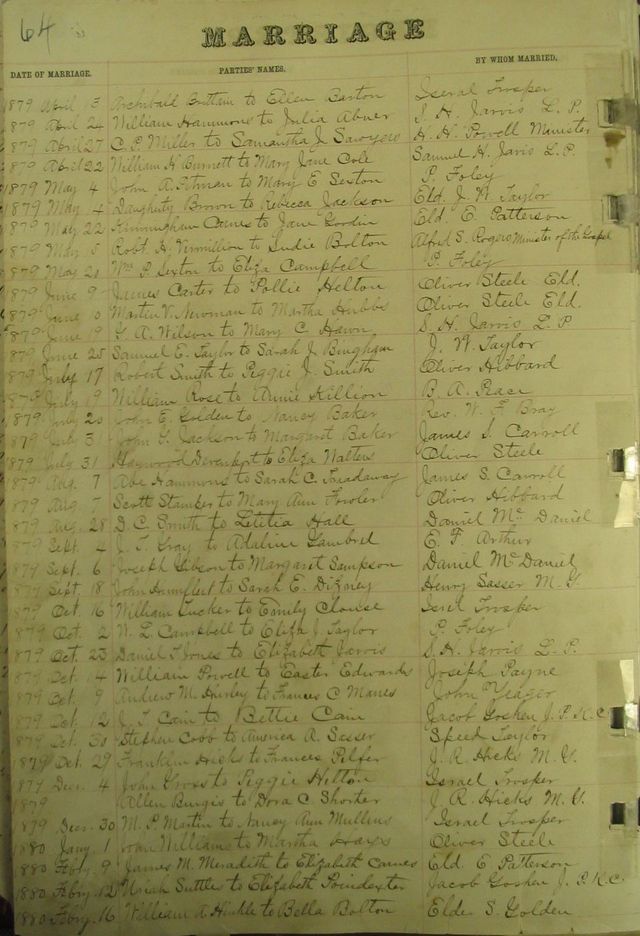 64
MARRIAGE
DATE OF MARRIAGE. PARTIES' NAMES. BY WHOM MARRIED.
1879 April 13 Archibald Brittain to Ellen Barton Iseral Trosper
879 April 24 William Hammons to Julia Abner S. H. Jarvis L. P.
879 April 27 C. P. Miller to Samantha J. Sawyers H. H. Powell Minister
879 April 22 William H Burnett to Mary Jane Cole Samuel H. Javis L. P.
1879 May 4 John A. Pitman to Mary E Sexton P. Foley
879 May 4 Daugherty Brown to Rebecca Jackson Eld. J. W. Taylor
879 May 22 Cames to Jane Gordin Eld. E. Patterson
879 May 8 Robt. H. Vermillion to Sudie Bolton Alfred S. Rogers Minister of the Gospel
879 May 20 Wm P. Sexton to Eliza Campbell P. Foley
879 June 9 James Carter to Pollie Helton Oliver Steele Eld.
879 June 10 Martin V. Newman to Martha Hubbs Oliver Steele Eld.
879 June 19 A. Wilson to Mary C. Hawn S. H. Jarvis L. P
879 June 25 Samuel E. Taylor to Sarah J. Bingham J. W. Taylor
879 July 17 Robert Smith to Piggie J. Smith Oliver Hibbard
879 July 19 William Rose to Annie Killion B. A. Peace
1879 July 20 John E. Golden to Nancy Baker Rev. W. F. Bray
879 July 31 John Jackson to Margaret Baker James S. Carroll
879 July 31 Haywood Devenport to Eliza Walters Oliver Steele
879 Aug. 7 Abe Hammons to Sarah C. Treadaway James S. Carroll
879 Aug. 7 Scott Stamper to Mary Ann Fowler Oliver Hibbard
879 Aug. 28 D. C. Smith to Letitia Hall Daniel Mc Daniel
879 Sept. 4 J. T. Gray to Adaline Gambrel E. F. Arthur
879 Sept. 6 Joseph Gibson to Margaret Sampson Daniel McDaniel
879 Sept. 18 John Humfleet to Sarah E. Dizney Henry Sasser M. G.
879 Oct. 16 William Tucker to Emily Clouse Isril Trosper
879 Oct. 2 W. L. Campbell to Eliza J. Taylor P. Foley
879 Oct. 23 Daniel T. Jones to Elizabeth Jarvis S. H. Jarvis L. P.
879 Oct. 14 William Powell to Easter Edwards Joseph Payne
879 Oct. 9 Andrew M. Hurley to Frances C. Manes John Yeager
879 Oct. 12 J. T. Cain to Bettie Cain Jacob Goshen J. P. K. C
879 Oct. 30 Stephen Cobb to America A. Sasser Speed Taylor
1879 Oct. 29 Franklin Hicks to Frances Pilfer J. R. Hicks M. G.
879 Dec. 4 John Gross to Piggie Hilton Israel Trosper
1879 Allen Burgis to Dora C. Shorter J. R. Hicks M. G.
1879 Dec. 30 M. P. Martin to Nancy Ann Mullins Israel Trosper
1880 Jany. 1 Williams to Martha Hays Oliver Steele
1880 Feby. 9 James M. Meradith to Elizabeth Carnes Eld. E. Patterson
1880 Febry. 12 Uriah Suttles to Elizabeth Poindexter Jacob Goshen J. P. K. C.
1880 Febry. 16 William A. Hinkle to Bella Bolton Elder S. Golden